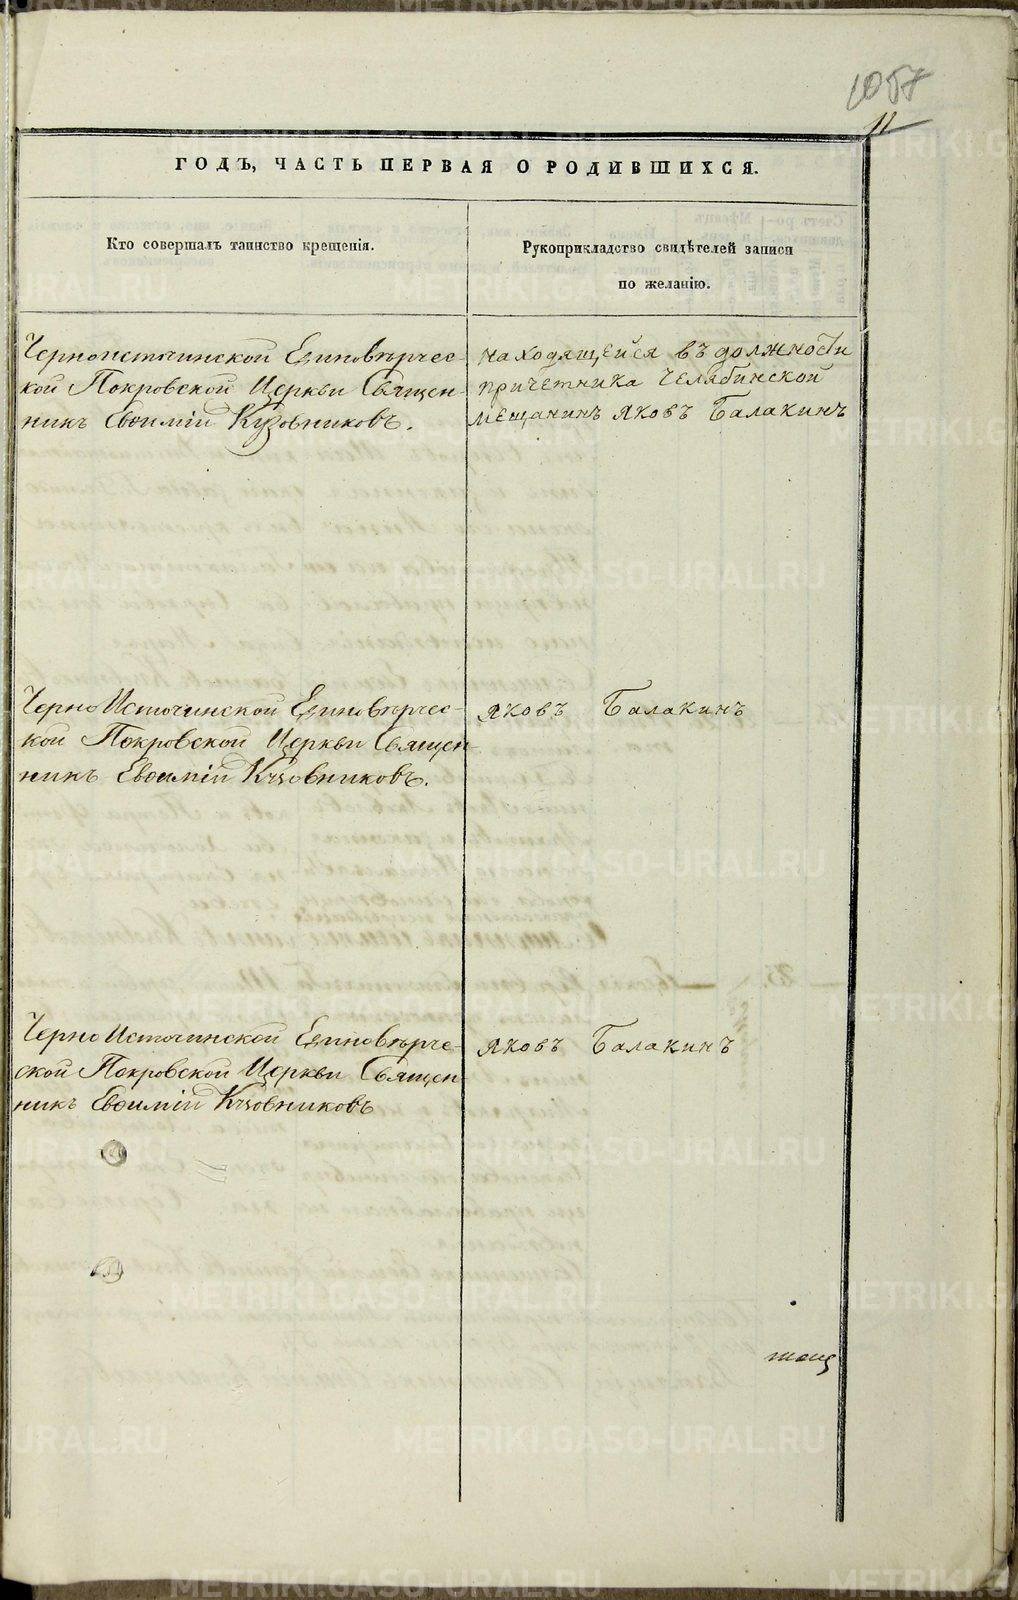 1057
11
ГОДЪ, ЧАСТЬ ПЕРВАЯ О РОДИВШИХСЯ.
Кто совершалъ таинство крещенія.
Рукоприкладство свидѣтелей записи
по желанію.
Черноисточинской Единовѣрчес-
кой Покровской Церкви Священ-
никъ Евѳимій Кузовниковъ.
находящейся въ должности
причетника Челябинской
мещанинъ Яковъ Балакинъ
ЧерноИсточинской Единовѣрчес-
кой Покровской Церкви Священ-
никъ Евѳимій Кузовниковъ.
Яковъ Балакинъ
ЧерноИсточинской Единовѣрче-
ской Покровской Церкви Священ-
никъ Евѳимій Кузовниковъ
Яковъ Балакинъ
METRIKI.GASO-URAL.RU